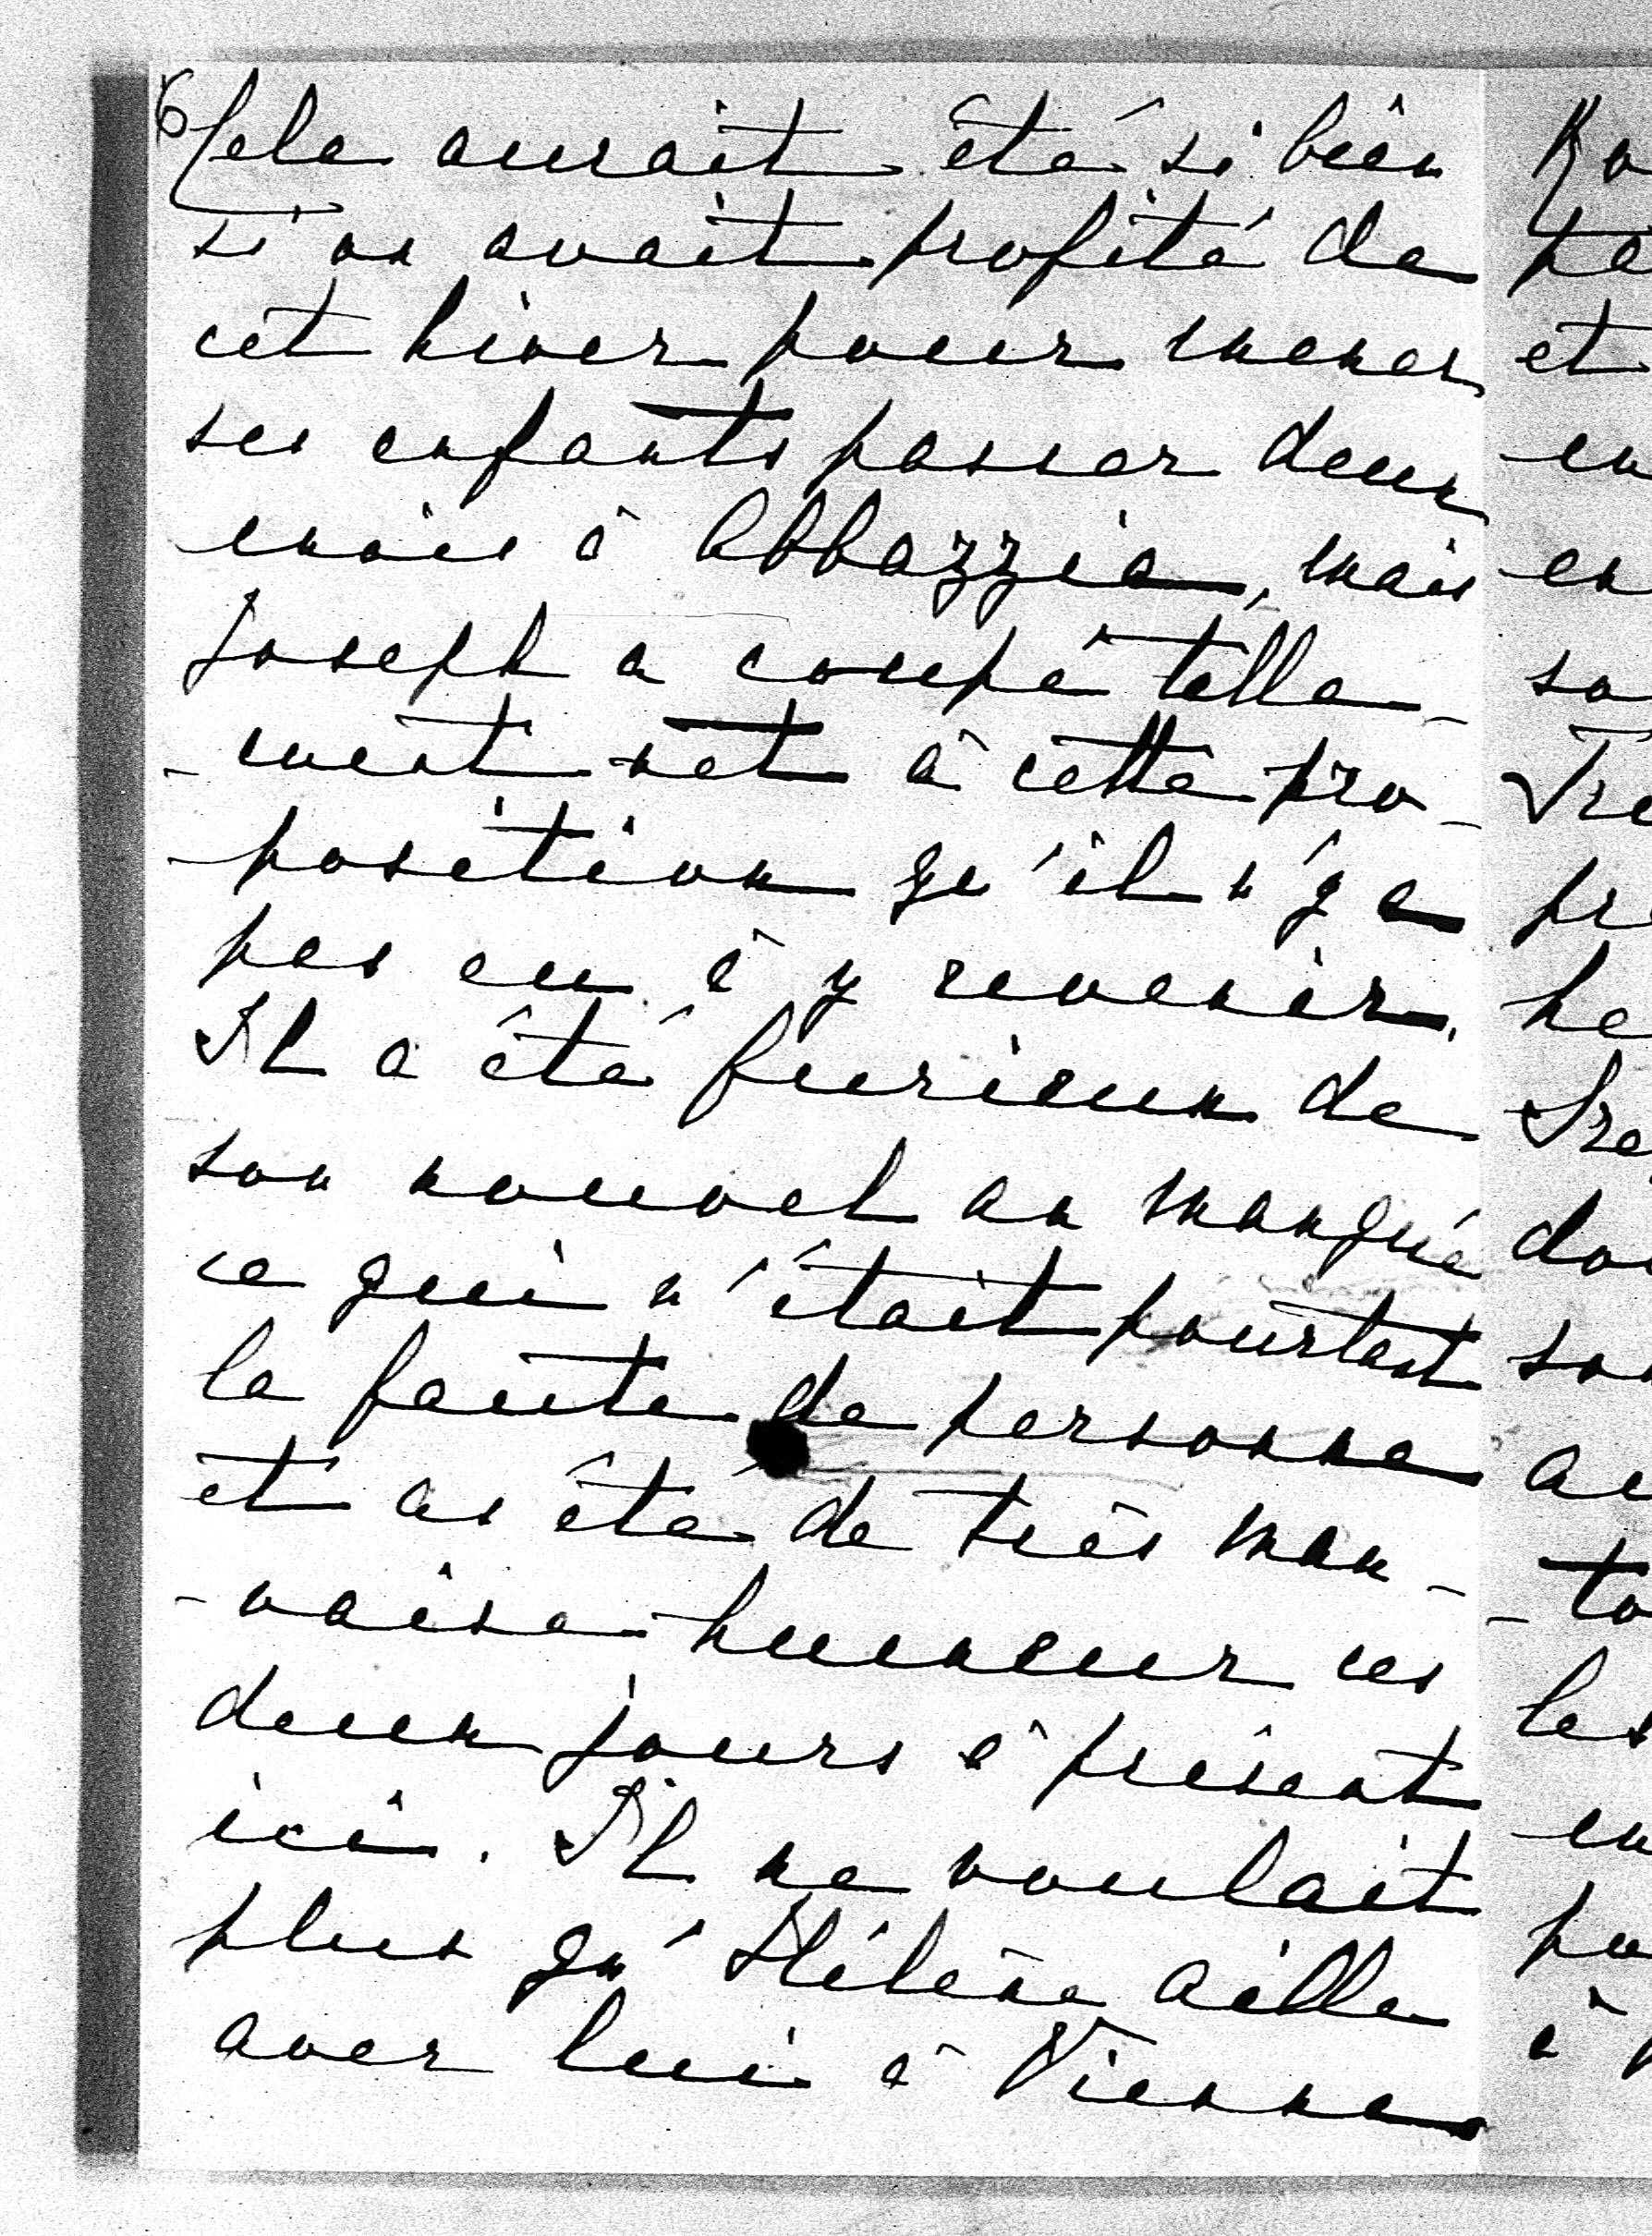 6
Cela aurait été si bien
si on avait profité de
cet hiver pour mener
ses enfants passer deux
mois à Abbazzia, mais
Joseph a coupé telle-
-ment net à cette pro-
-position qu'il n'y a
pas eu à y revenir.
Il a été furieux de
son nouvel an manqué
ce qui n'était pourtant
la faute de personne
et as été de très mau-
-vaise humeur ces
deux jours à présent
ici. Il ne voulait
plus qu'Hélène aille
avec lui à Vienne
et